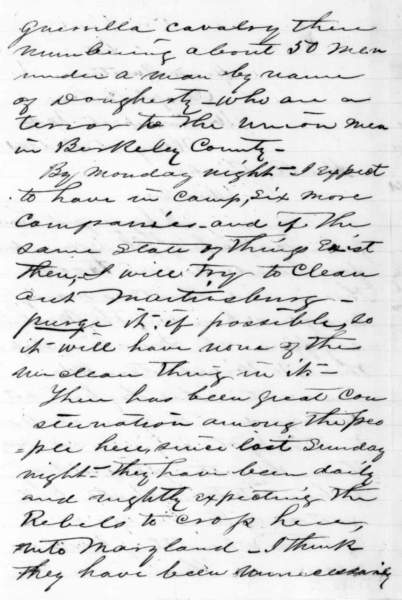 guerrilla cavalry there
numbering about 50 men
under a man by name
of Dougherty - who are a
terror to the Union men
in Berkeley County -
By Monday night - I expect
to have in camp, six more
companies - and if the
same state of things exist
then, I will try to clean
out Martinsburg -
purge it, if possible, so
it will have none of the
unclean thing in it -
There has been great con
sternation among the peo
=ple here, since last Sunday
night - they have been daily
and nightly expecting the
Rebels to crop here,
into Maryland - I think
they have been unnecessarily